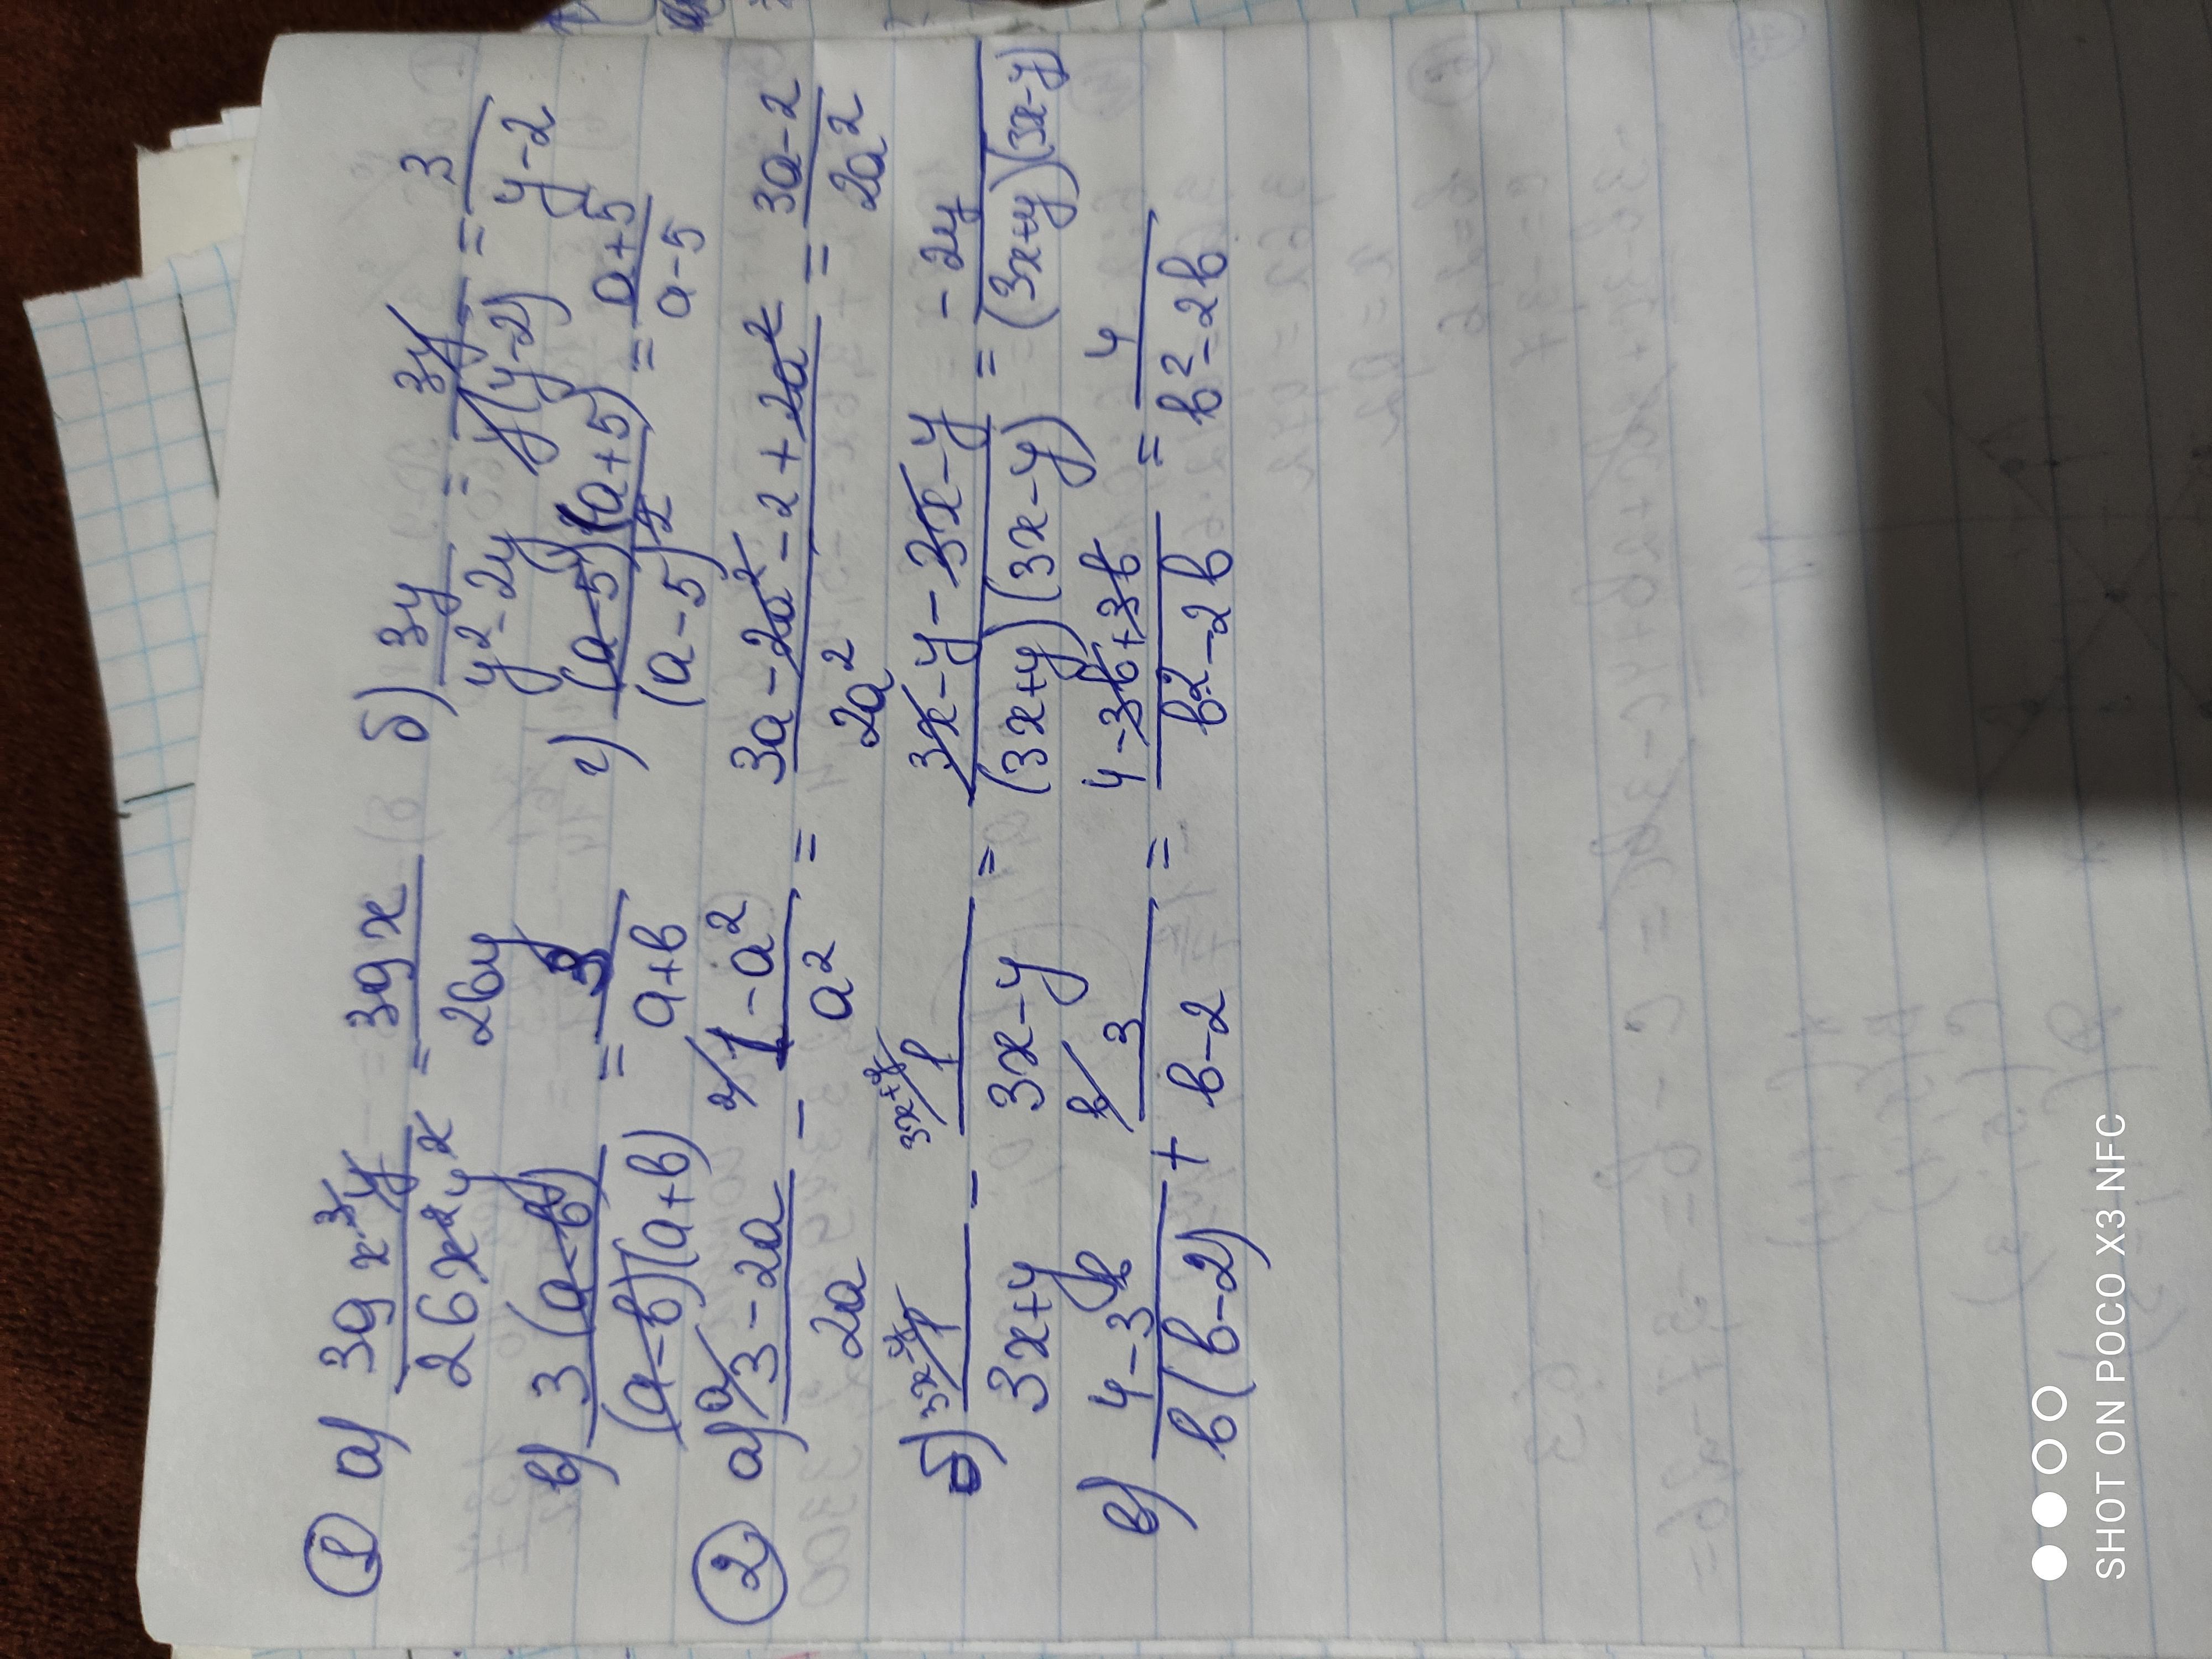 ① а) 39x³y/26x²y² = 39x/26y б) 3y/y²-2y = 3y/y(y-2) = 3/y-2
в) 3(a-b)/(a-b)(a+b) = 3/a+b г) (a-5)(a+5)/(a-5)² = a+5/a-5
② а) a/3-2a/2a - 2/1-a²/a² = 3a-2a²-2+2a²/2a² = 3a-2/2a²
б) 3x-y/1/3x+y - 3x+y/1/3x-y = 3x-y-3x-y/(3x+y)(3x-y) = -2y/(3x+y)(3x-y)
в) 4-3b/b(b-2) + b/3/b-2 = 4-3b+3b/b²-2b = 4/b²-2b
SHOT ON POCO X3 NFC